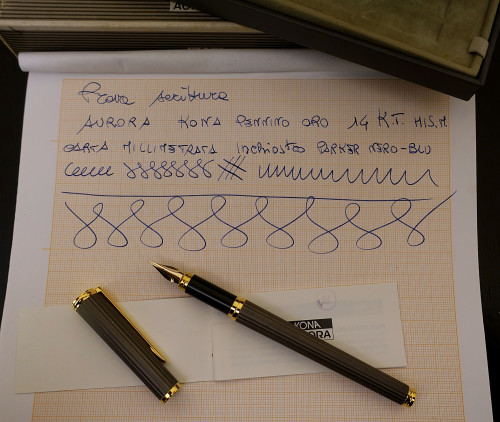 Prova scrittura
AURORA KONA PENNINO ORO 14 KT. MIS. M
CARTA MILLIMETRATA inchiostro PARKER NERO-BLU
KONA